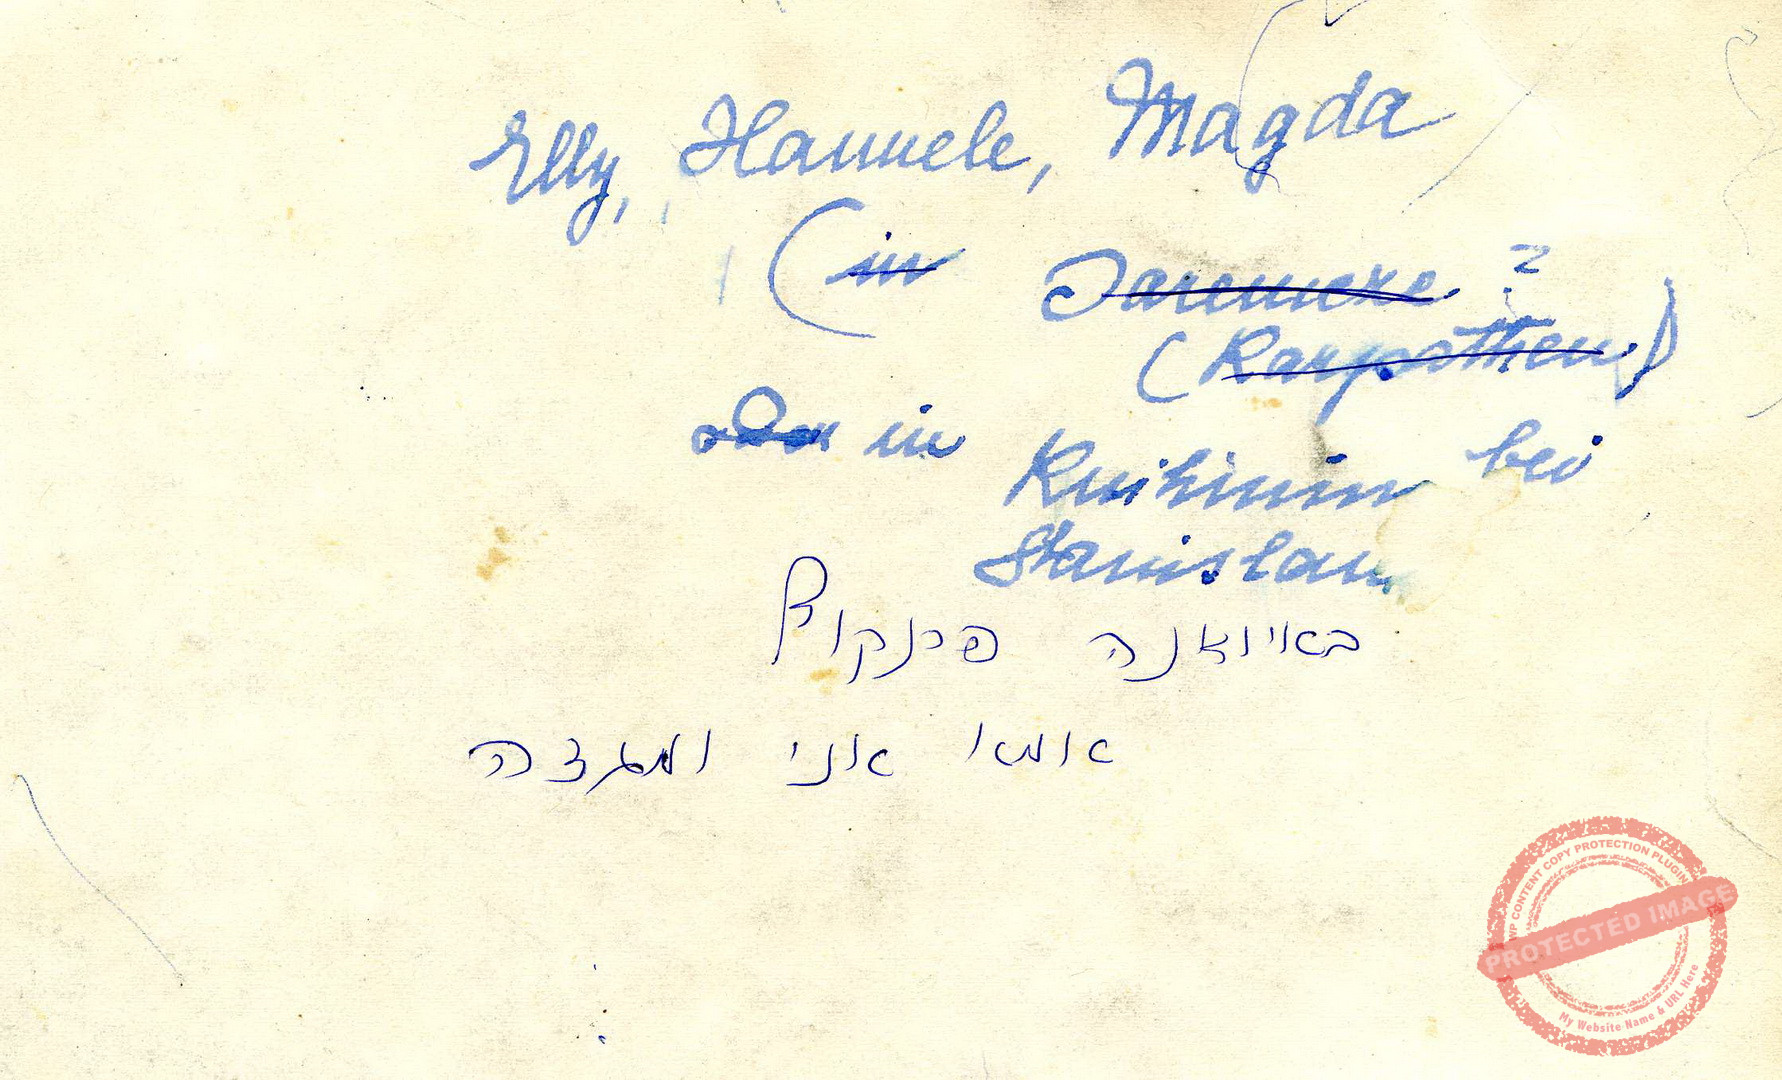 Elly, Hannele, Magda
(in Jaremcze ?
(Karpathen)
oder in Knihinin bei
Stanislau
באיוואנה פרנקובסק
אמא אני ומגדה
WP CONTENT COPY PROTECTION PLUGIN
PROTECTED IMAGE
My Website Name & URL Here